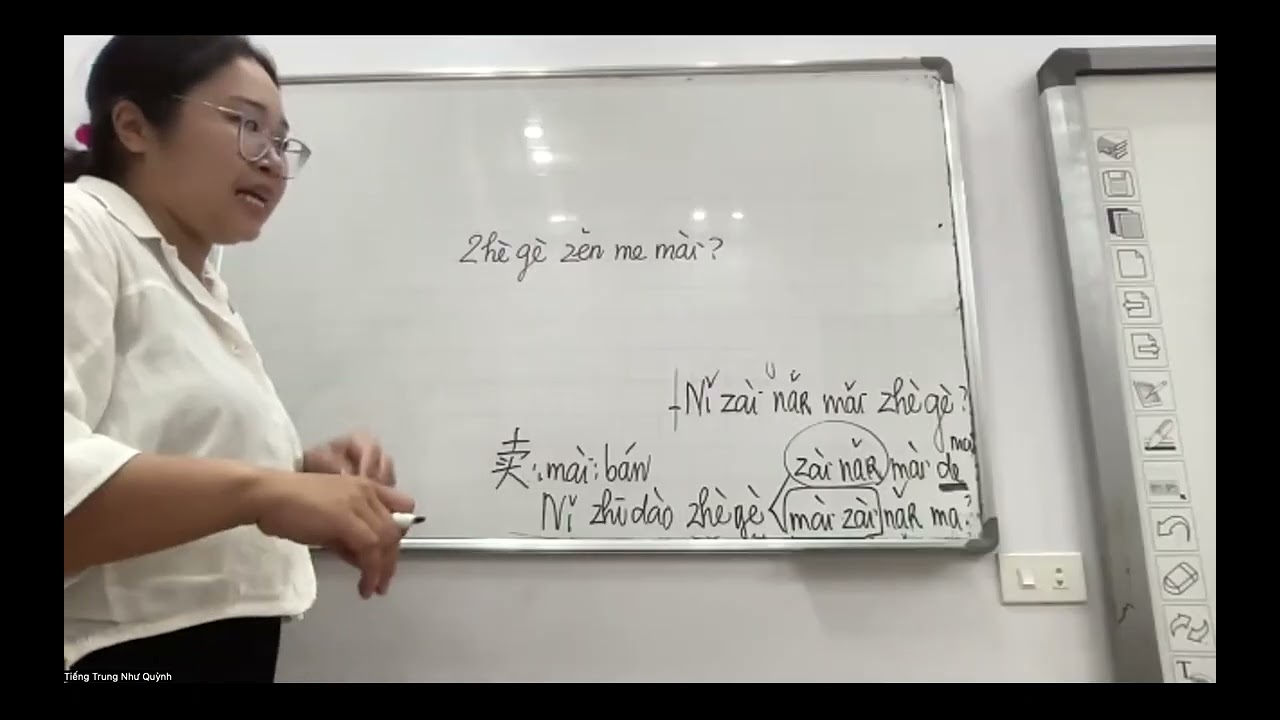 Zhè gè zěn me mài?
+ Nǐ zài nǎR mǎi zhè gè?
zài nǎR mài de ma
卖: mài: bán
Nǐ zhīdào zhègè mài zài nǎR ma?
Tiếng Trung Như Quỳnh
T